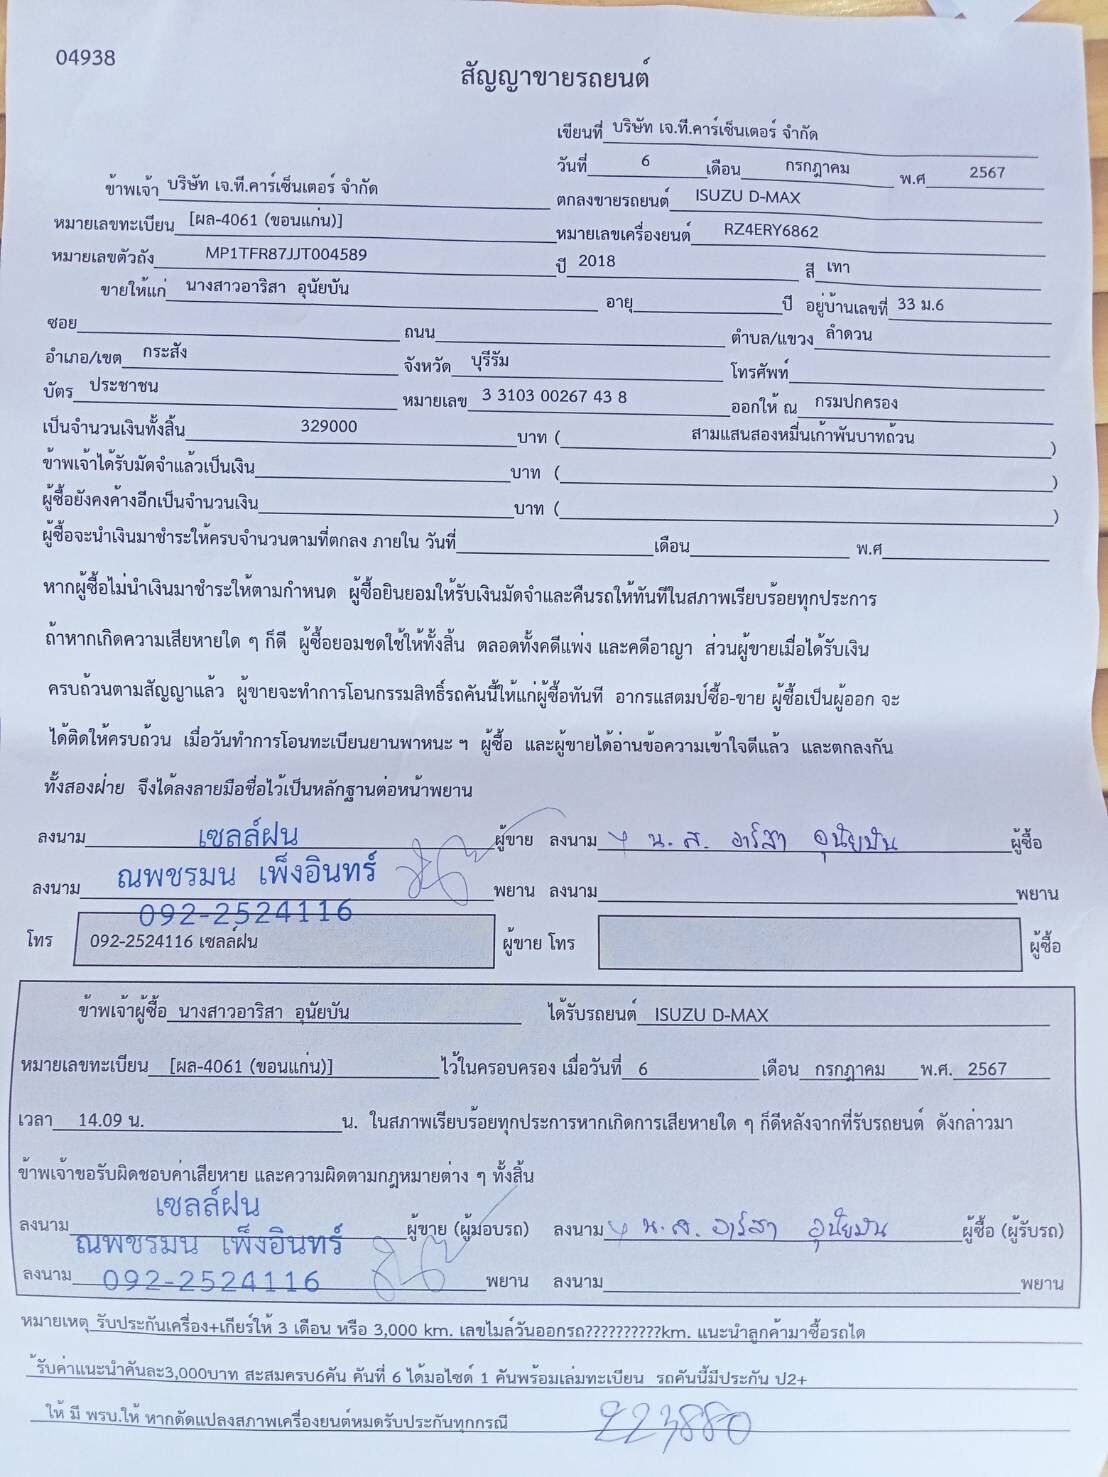 04938
สัญญาขายรถยนต์
เขียนที่ บริษัท เจ.ที.คาร์เซ็นเตอร์ จำกัด
วันที่ 6 เดือน กรกฎาคม พ.ศ 2567
ข้าพเจ้า บริษัท เจ.ที.คาร์เซ็นเตอร์ จำกัด ตกลงขายรถยนต์ ISUZU D-MAX
หมายเลขทะเบียน [ผล-4061 (ขอนแก่น)] หมายเลขเครื่องยนต์ RZ4ERY6862
หมายเลขตัวถัง MP1TFR87JJT004589 ปี 2018 สี เทา
ขายให้แก่ นางสาวอาริสา อุนัยบัน อายุ ปี อยู่บ้านเลขที่ 33 ม.6
ซอย ถนน ตำบล/แขวง ลำดวน
อำเภอ/เขต กระสัง จังหวัด บุรีรัม โทรศัพท์
บัตร ประชาชน หมายเลข 3 3103 00267 43 8 ออกให้ ณ กรมปกครอง
เป็นจำนวนเงินทั้งสิ้น 329000 บาท ( สามแสนสองหมื่นเก้าพันบาทถ้วน )
ข้าพเจ้าได้รับมัดจำแล้วเป็นเงิน บาท ( )
ผู้ซื้อยังคงค้างอีกเป็นจำนวนเงิน บาท ( )
ผู้ซื้อจะนำเงินมาชำระให้ครบจำนวนตามที่ตกลง ภายใน วันที่ เดือน พ.ศ
หากผู้ซื้อไม่นำเงินมาชำระให้ตามกำหนด ผู้ซื้อยินยอมให้รับเงินมัดจำและคืนรถให้ทันทีในสภาพเรียบร้อยทุกประการ
ถ้าหากเกิดความเสียหายใด ๆ ก็ดี ผู้ซื้อยอมชดใช้ให้ทั้งสิ้น ตลอดทั้งคดีแพ่ง และคดีอาญา ส่วนผู้ขายเมื่อได้รับเงิน
ครบถ้วนตามสัญญาแล้ว ผู้ขายจะทำการโอนกรรมสิทธิ์รถคันนี้ให้แก่ผู้ซื้อทันที อากรแสตมป์ซื้อ-ขาย ผู้ซื้อเป็นผู้ออก จะ
ได้ติดให้ครบถ้วน เมื่อวันทำการโอนทะเบียนยานพาหนะ ฯ ผู้ซื้อ และผู้ขายได้อ่านข้อความเข้าใจดีแล้ว และตกลงกัน
ทั้งสองฝ่าย จึงได้ลงลายมือชื่อไว้เป็นหลักฐานต่อหน้าพยาน
ลงนาม เซลล์ฝน ผู้ขาย ลงนาม น.ส. อาริสา อุนัยบัน ผู้ซื้อ
ลงนาม ณพชรมน เพ็งอินทร์ พยาน ลงนาม พยาน
092-2524116
โทร 092-2524116 เซลล์ฝน ผู้ขาย โทร ผู้ซื้อ
ข้าพเจ้าผู้ซื้อ นางสาวอาริสา อุนัยบัน ได้รับรถยนต์ ISUZU D-MAX
หมายเลขทะเบียน [ผล-4061 (ขอนแก่น)] ไว้ในครอบครอง เมื่อวันที่ 6 เดือน กรกฎาคม พ.ศ. 2567
เวลา 14.09 น. น. ในสภาพเรียบร้อยทุกประการหากเกิดการเสียหายใด ๆ ก็ดีหลังจากที่รับรถยนต์ ดังกล่าวมา
ข้าพเจ้าขอรับผิดชอบค่าเสียหาย และความผิดตามกฎหมายต่าง ๆ ทั้งสิ้น
เซลล์ฝน
ลงนาม ณพชรมน เพ็งอินทร์ ผู้ขาย (ผู้มอบรถ) ลงนาม น.ส. อาริสา อุนัยบัน ผู้ซื้อ (ผู้รับรถ)
ลงนาม 092-2524116 พยาน ลงนาม พยาน
หมายเหตุ รับประกันเครื่อง+เกียร์ให้ 3 เดือน หรือ 3,000 km. เลขไมล์วันออกรถ??????????km. แนะนำลูกค้ามาซื้อรถได
้รับค่าแนะนำคันละ3,000บาท สะสมครบ6คัน คันที่ 6 ได้มอไซด์ 1 คันพร้อมเล่มทะเบียน รถคันนี้มีประกัน ป2+
ให้ มี พรบ.ให้ หากดัดแปลงสภาพเครื่องยนต์หมดรับประกันทุกกรณี 223880